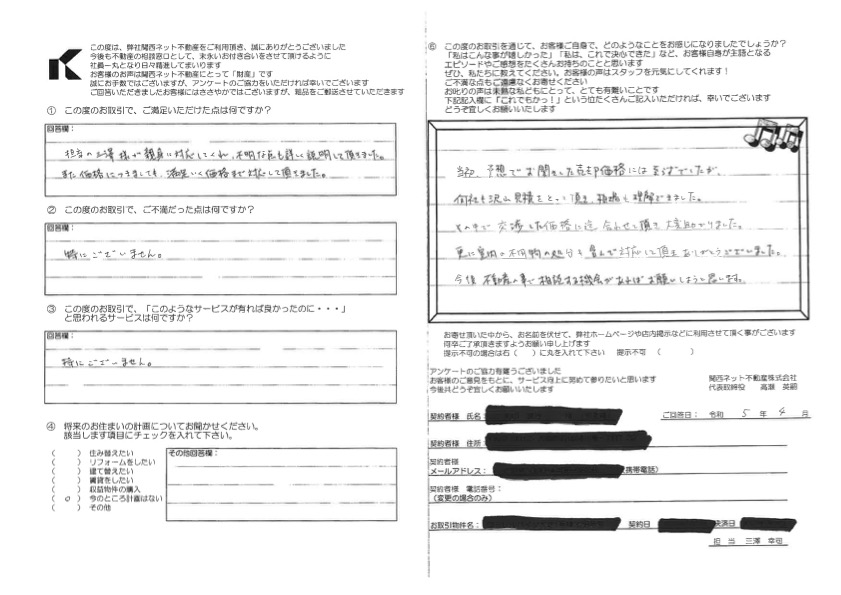 この度は、弊社関西ネット不動産をご利用頂き、誠にありがとうございました
今後も不動産の相談窓口として、末永いお付き合いをさせて頂けるように
社員一丸となり日々精進してまいります
お客様のお声は関西ネット不動産にとって「財産」です
誠にお手数ではございますが、アンケートのご協力をいただければ幸いでございます
ご回答いただきましたお客様にはささやかではございますが、粗品をご郵送させていただきます
① この度のお取引で、ご満足いただけた点は何ですか?
回答欄:
担当の三澤様が親身に対応してくれ、不明な点も詳しく説明して頂きました。
また価格につきましても、満足いく価格まで対応して頂きました。
② この度のお取引で、ご不満だった点は何ですか?
回答欄:
特にございません。
③ この度のお取引で、「このようなサービスが有れば良かったのに・・・」
と思われるサービスは何ですか?
回答欄:
特にございません。
④ 将来のお住まいの計画についてお聞かせください。
該当します項目にチェックを入れて下さい。
( ) 住み替えたい
( ) リフォームをしたい
( ) 建て替えたい
( ) 賃貸をしたい
( ) 収益物件の購入
( ○ ) 今のところ計画はない
( ) その他
その他回答欄:
⑥ この度のお取引を通じて、お客様ご自身で、どのようなことをお感じになりましたでしょうか?
「私はこんな事が嬉しかった」「私は、これで決心できた」など、お客様自身が主語となる
エピソードやご感想をたくさんお持ちのことと思います
ぜひ、私たちに教えてください。お客様の声はスタッフを元気にしてくれます!
ご不満な点もご遠慮なくお寄せください
お叱りの声は未熟な私どもにとって、とても有難いことです
下記記入欄に「これでもかっ!」という位たくさんご記入いただければ、幸いでございます
どうぞ宜しくお願いいたします
当初、予想でお聞きした売却価格には至らずでしたが、
何社も沢山見積をとって頂き、相場も理解できました。
その中で交渉した価格に迄合わせて頂き大変助かりました。
更に室内の不用物の処分も含んで対応して頂きありがとうございました。
今後不動産の事で相談する機会があればお願いしようと思います。
お寄せ頂いた中から、お名前を伏せて、弊社ホームページや店内掲示などに利用させて頂く事がございます
何卒ご了承頂きますようお願い申し上げます
提示不可の場合は右( )に丸を入れて下さい 提示不可 ( )
アンケートのご協力有難うございました
お客様のご意見をもとに、サービス向上に努めて参りたいと思います
今後共どうぞ宜しくお願いいたします
関西ネット不動産株式会社
代表取締役 高瀬 英嗣
契約者様 氏名:
ご回答日: 令和 5 年 4 月
契約者様 住所:
契約者様
メールアドレス: (携帯電話)
契約者様 電話番号:
(変更の場合のみ)
お取引物件名: 契約日 決済日
担 当 三澤 幸司